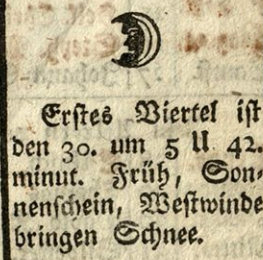 Erstes Viertel ist
den 30. um 5 U 42.
minut. Früh, Son-
nenschein, Westwinde
bringen Schnee.